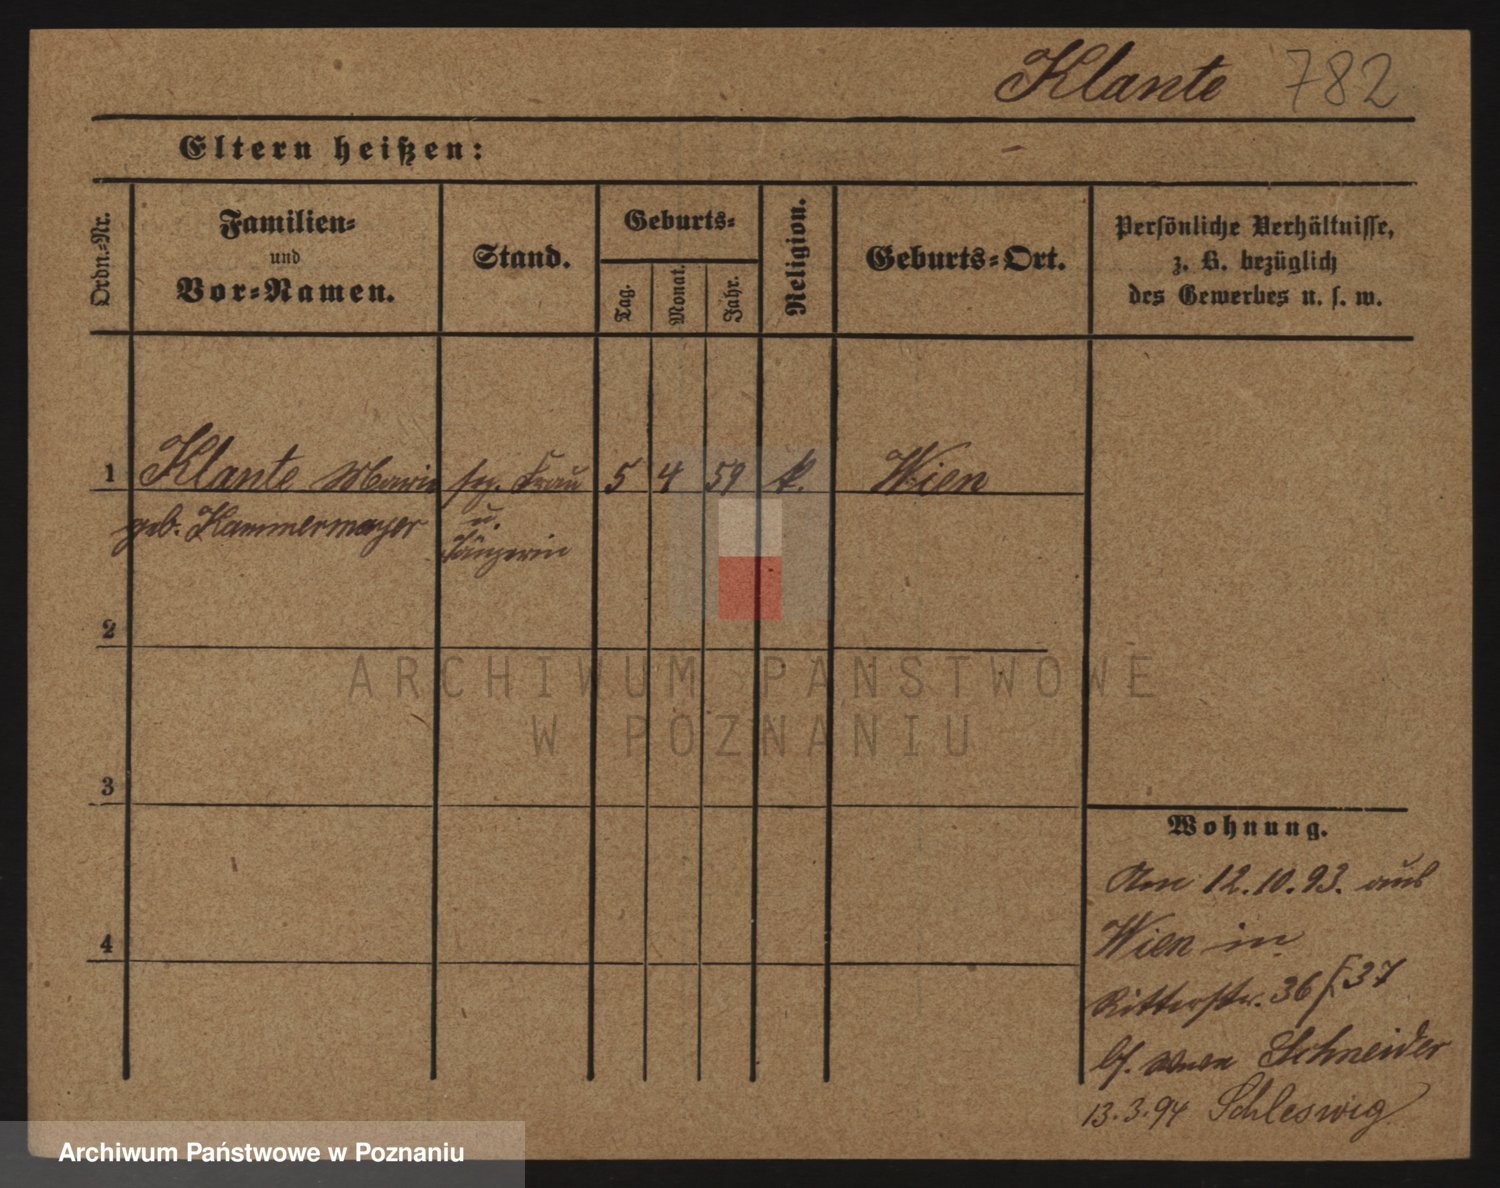 Klante 782
Eltern heißen:
Ordn.-Nr.
Familien-
und
Vor-Namen.
Stand.
Geburts-
Tag.
Monat.
Jahr.
Religion.
Geburts-Ort.
Persönliche Verhältnisse,
z. B. bezüglich
des Gewerbes u. s. w.
1 Klante Marie sep. Frau 5 4 59 k. Wien
geb. Kammermayer u.
Sängerin
2
3
4
Wohnung.
Am 12.10.93. aus
Wien in
Ritterstr. 36/37
bei Schneider
13.3.94 Schleswig
ARCHIWUM PAŃSTWOWE
W POZNANIU
Archiwum Państwowe w Poznaniu